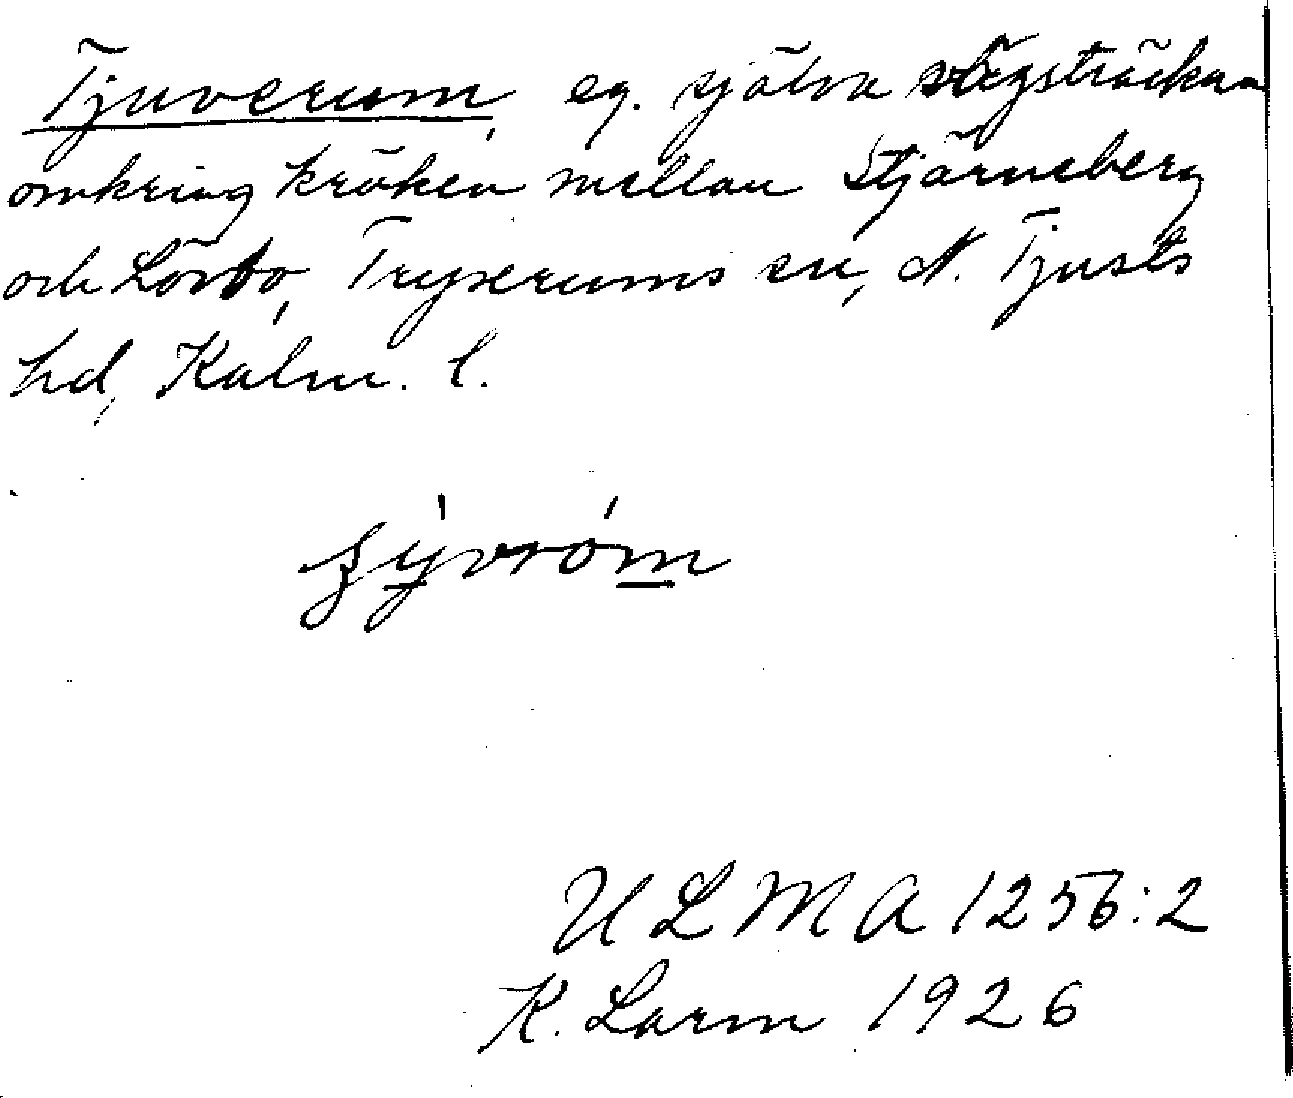 Tjuverum, eg. själva vägsträckan
omkring kröken mellan Stjärneberg
och Lövbo, Tryserums sn, N. Tjusts
hd, Kalm. l.
U L M A 1256:2
K. Larm 1926